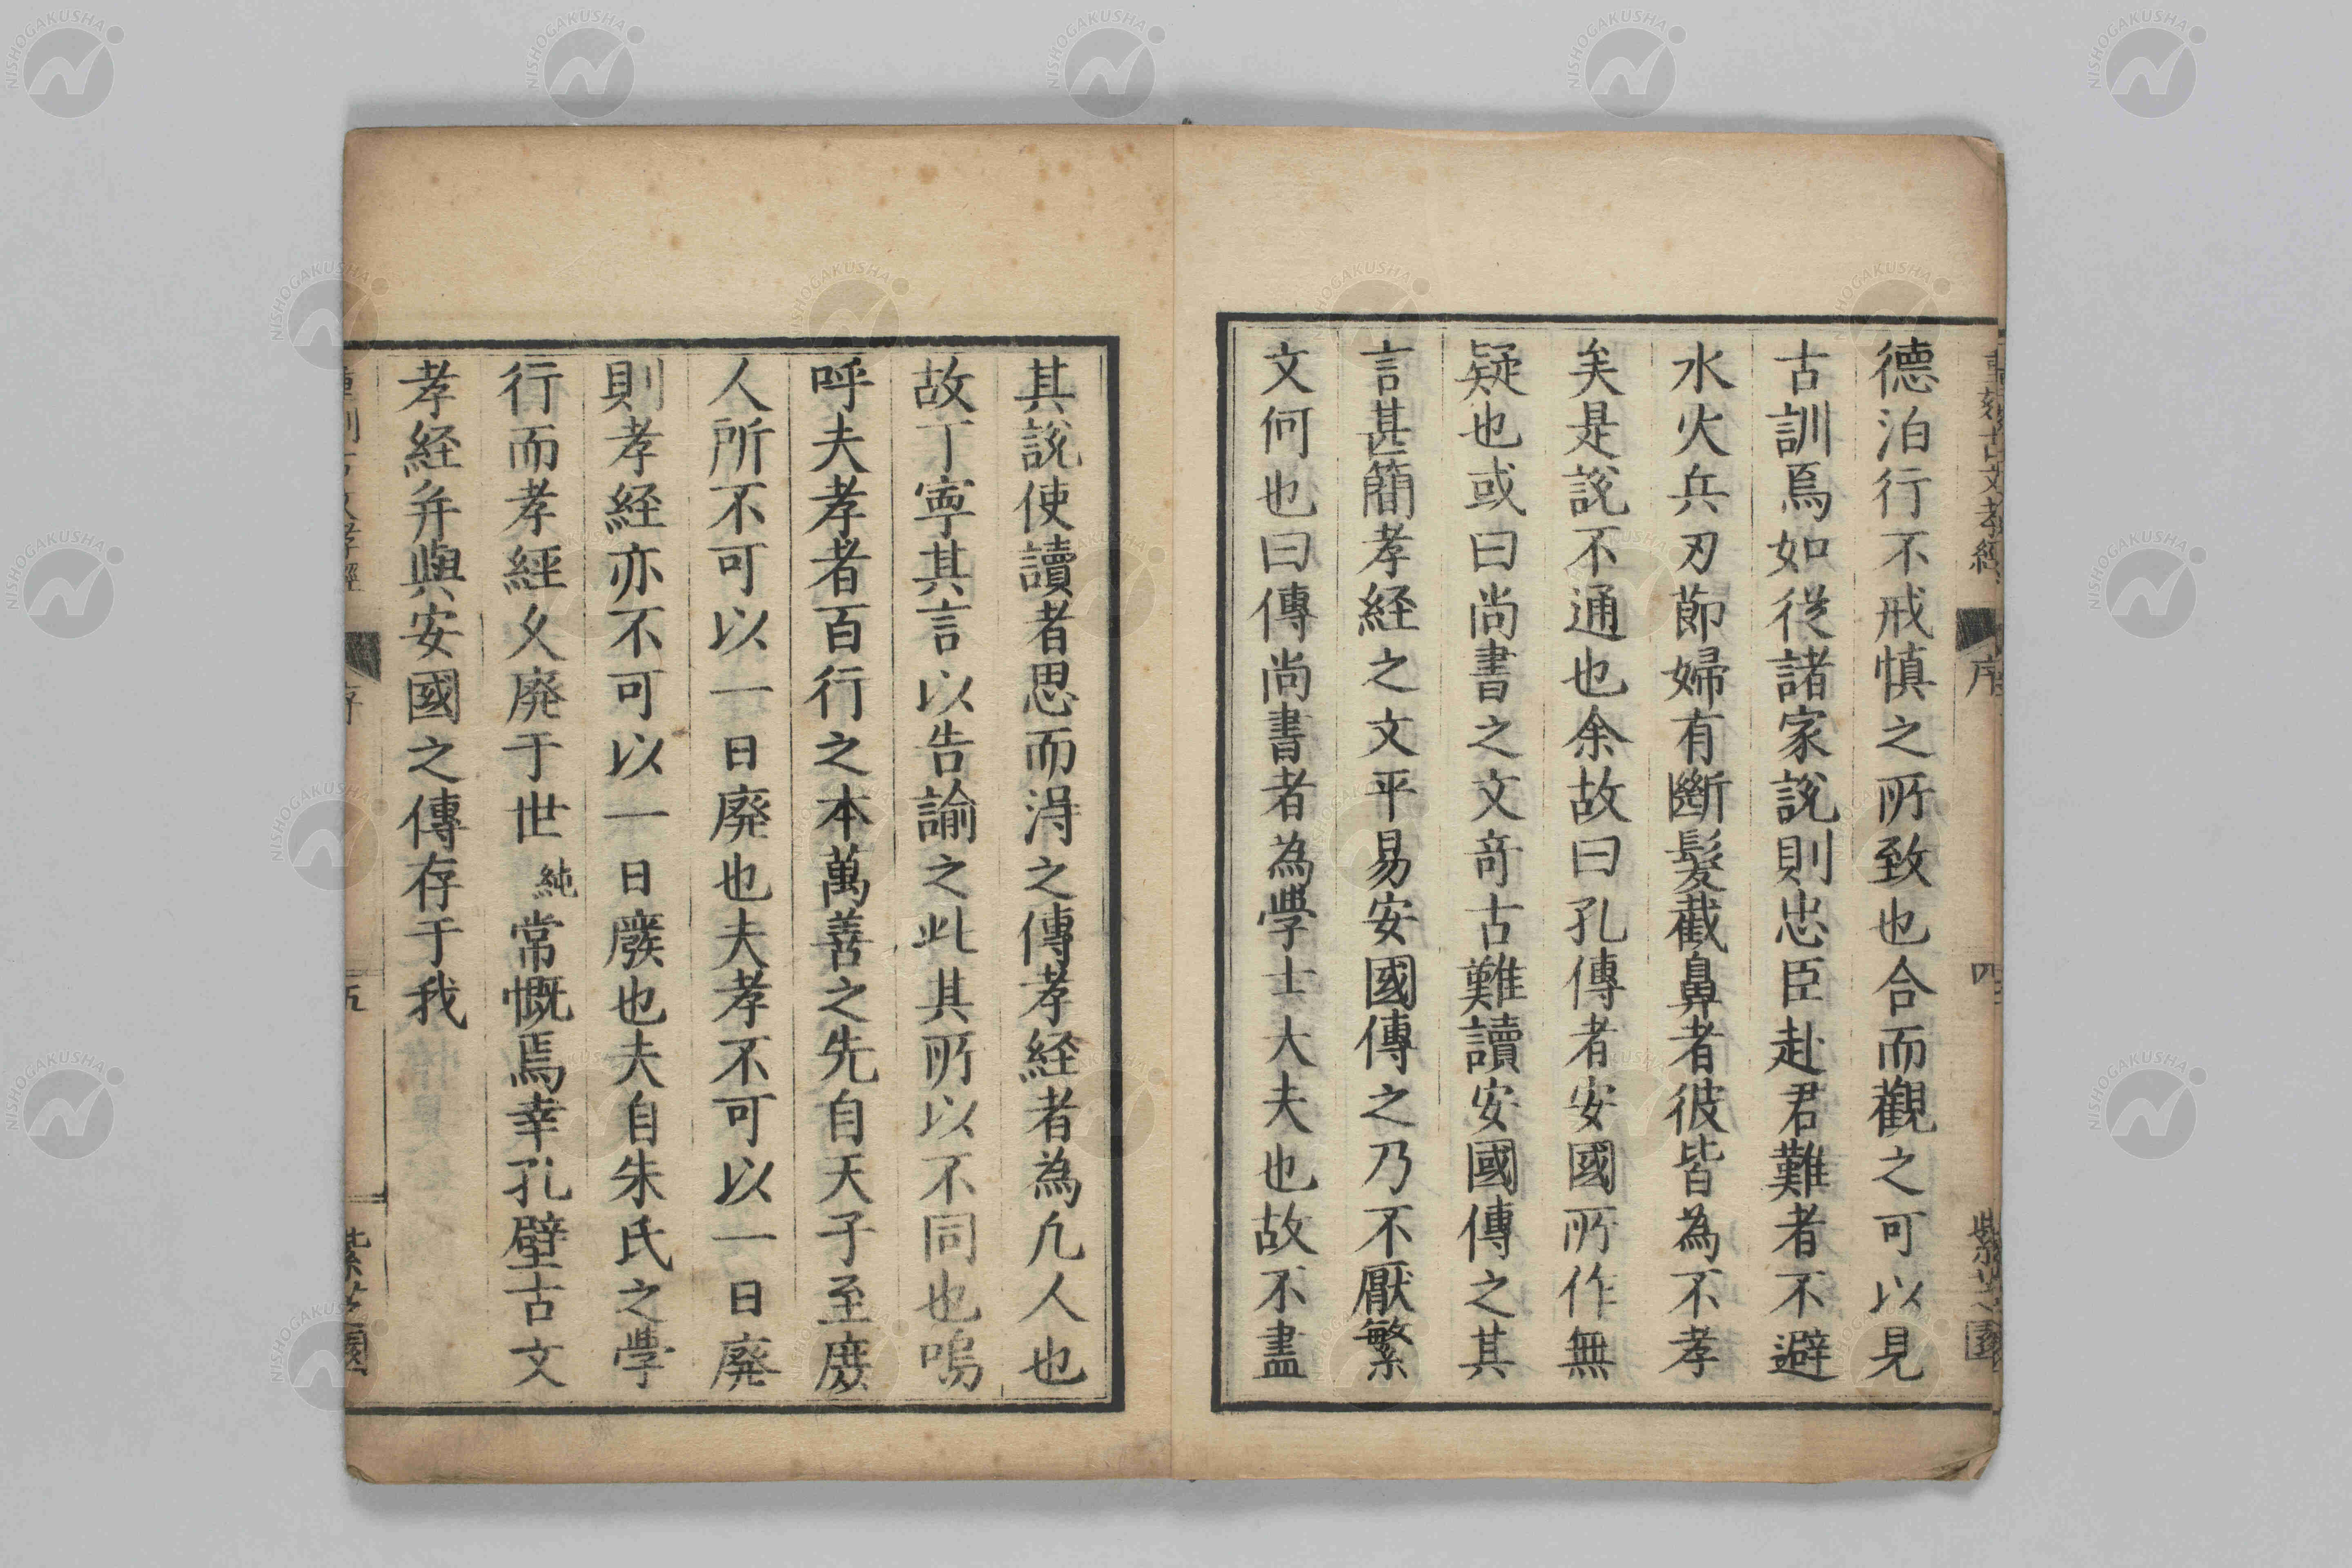 德泊行不戒慎之所致也合而觀之可以見
古訓焉如從諸家說則忠臣赴君難者不避
水火兵刃節婦有斷髮截鼻者彼皆為不孝
矣是說不通也余故曰孔傳者安國所作無
疑也或曰尚書之文奇古難讀安國傳之其
言甚簡孝経之文平易安國傳之乃不厭繁
文何也曰傳尚書者為學士大夫也故不盡
其說使讀者思而淂之傳孝経者為凢人也
故丁寧其言以告諭之此其所以不同也嗚
呼夫孝者百行之本萬善之先自天子至庻
人所不可以一日廃也夫孝不可以一日廃
則孝経亦不可以一日廢也夫自朱氏之學
行而孝經久廃于世純常慨焉幸孔壁古文
孝経并與安國之傳存于我
序
四
紫芝園
序
五
紫芝園
NISHOGAKUSHA